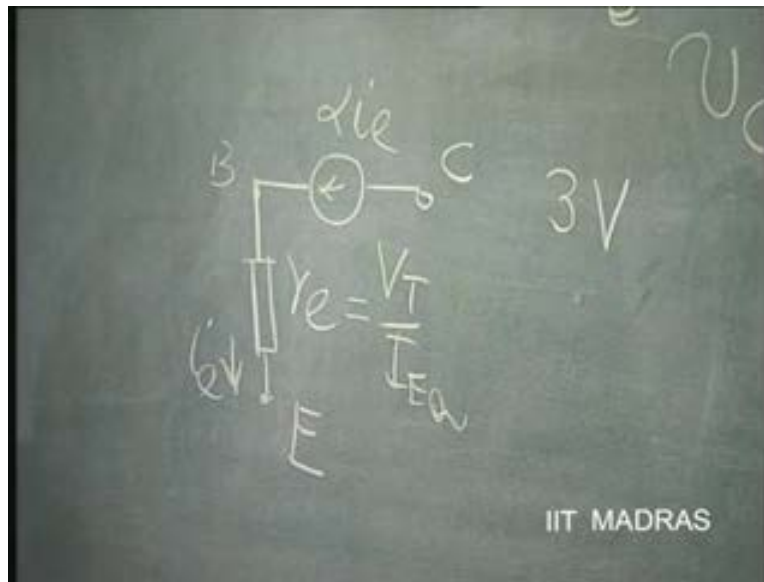 e
αie
B
C
3V
re = VT / IEQ
ie↓
E
IIT MADRAS